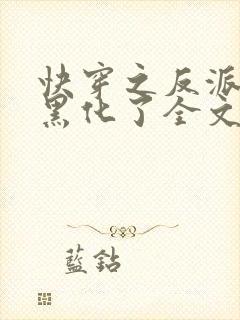 快穿之反派
黑化了全文
藍鈷